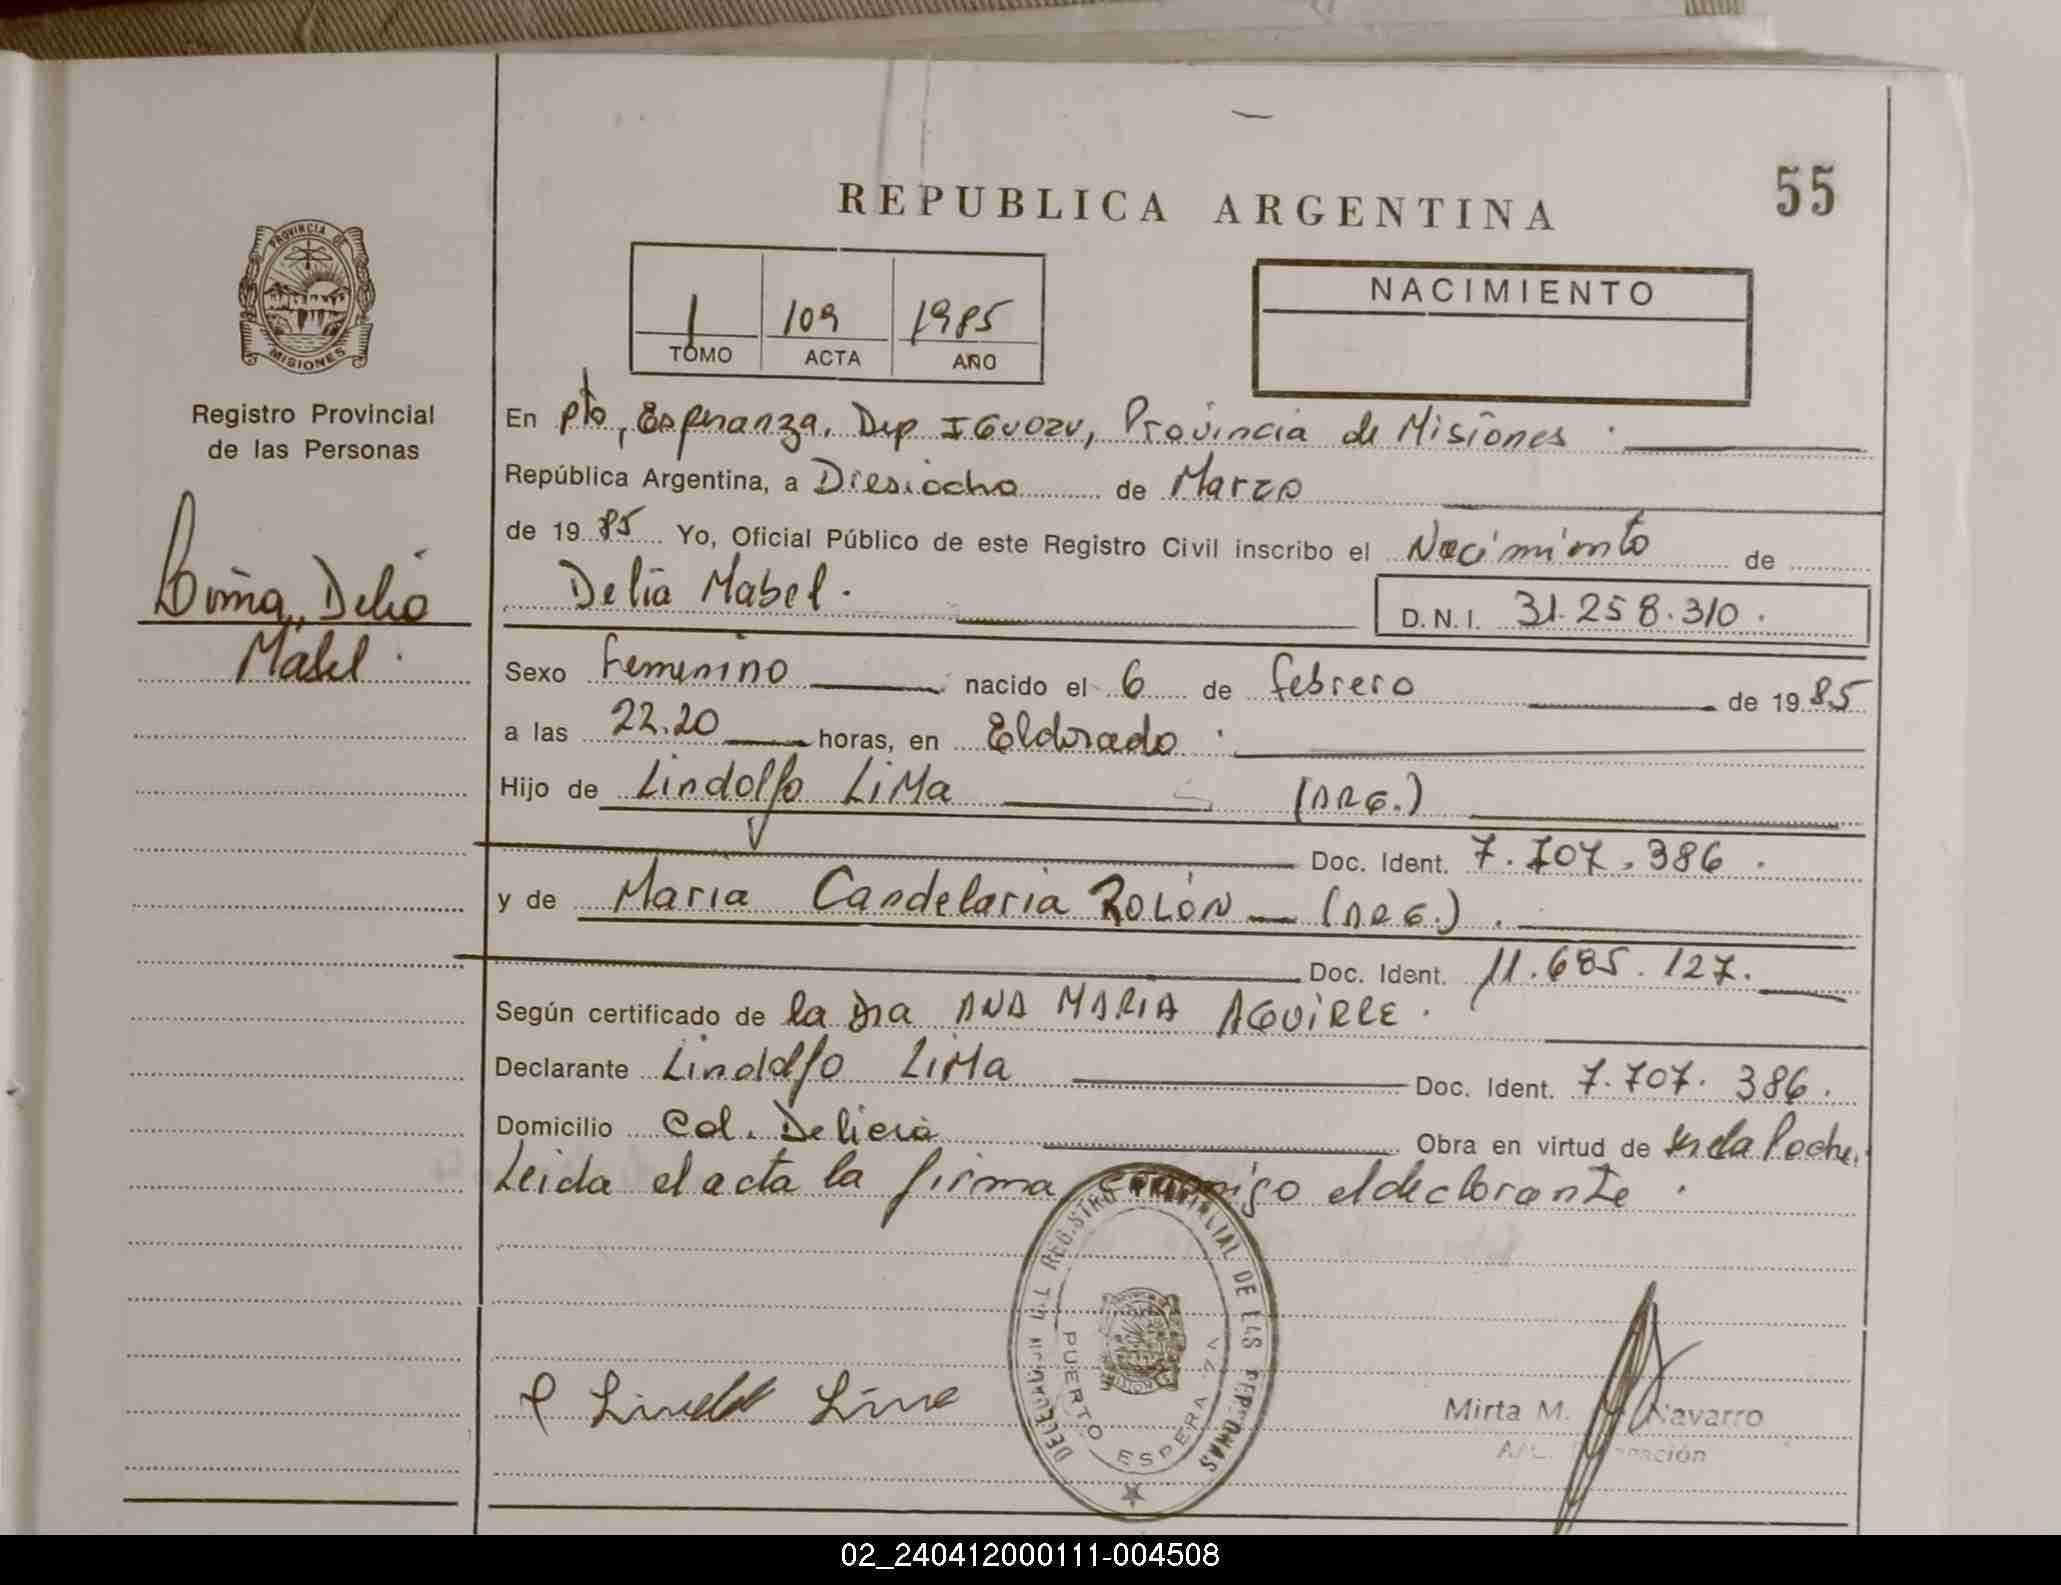 REPUBLICA ARGENTINA
55
PROVINCIA DE
MISIONES
Registro Provincial
de las Personas
Lima, Delia
Mabel.
1 109 1985
TOMO ACTA AÑO
NACIMIENTO
En Pto, Esperanza, Dep IGUAZU, Provincia de Misiones.
República Argentina, a Diesiocho de Marzo
de 1985 Yo, Oficial Público de este Registro Civil inscribo el Nacimiento de
Delia Mabel. D.N.I. 31.258.310.
Sexo Femenino nacido el 6 de febrero de 1985
a las 22.20 horas, en Eldorado.
Hijo de Lindolfo LiMa (ARG.)
Doc. Ident. 7.707.386.
y de Maria Candelaria ROLÓN (ARG.).
Doc. Ident. 11.685.127.
Según certificado de la Dra ANA MARIA AGUIRRE.
Declarante Lindolfo LiMa Doc. Ident. 7.707.386.
Domicilio Col. Delicia Obra en virtud de
Leida el acta la firma conmigo el declarante.
REGISTRO PROVINCIAL DE LAS PERSONAS
PUERTO ESPERANZA
Lindolfo Lima
Mirta M. Navarro
02_240412000111-004508